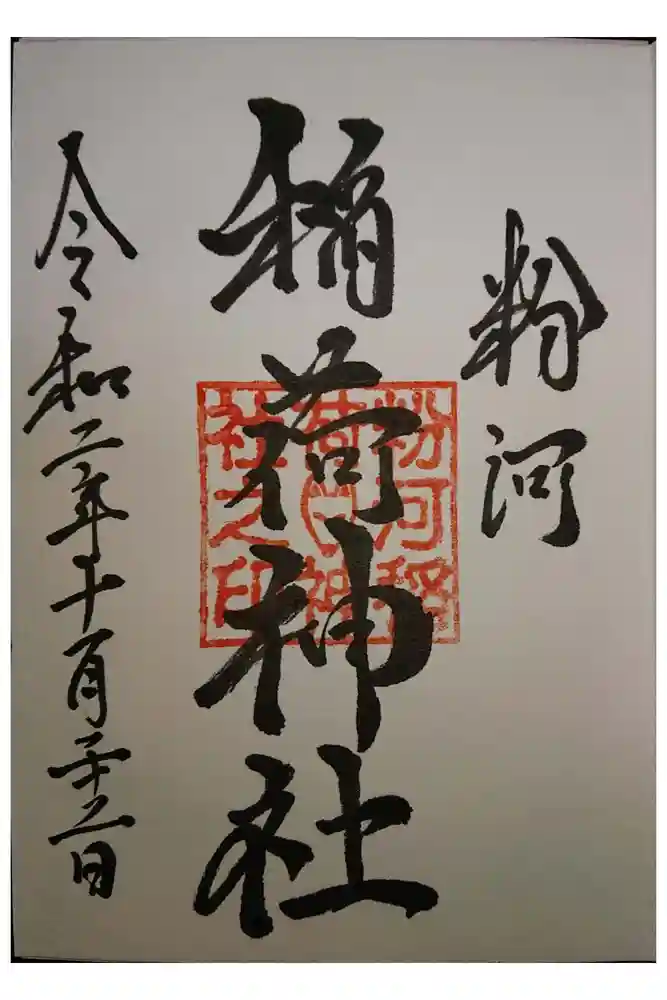 粉河
稲荷神社
令和二年十一月二十二日
粉河稲
荷神
社之印